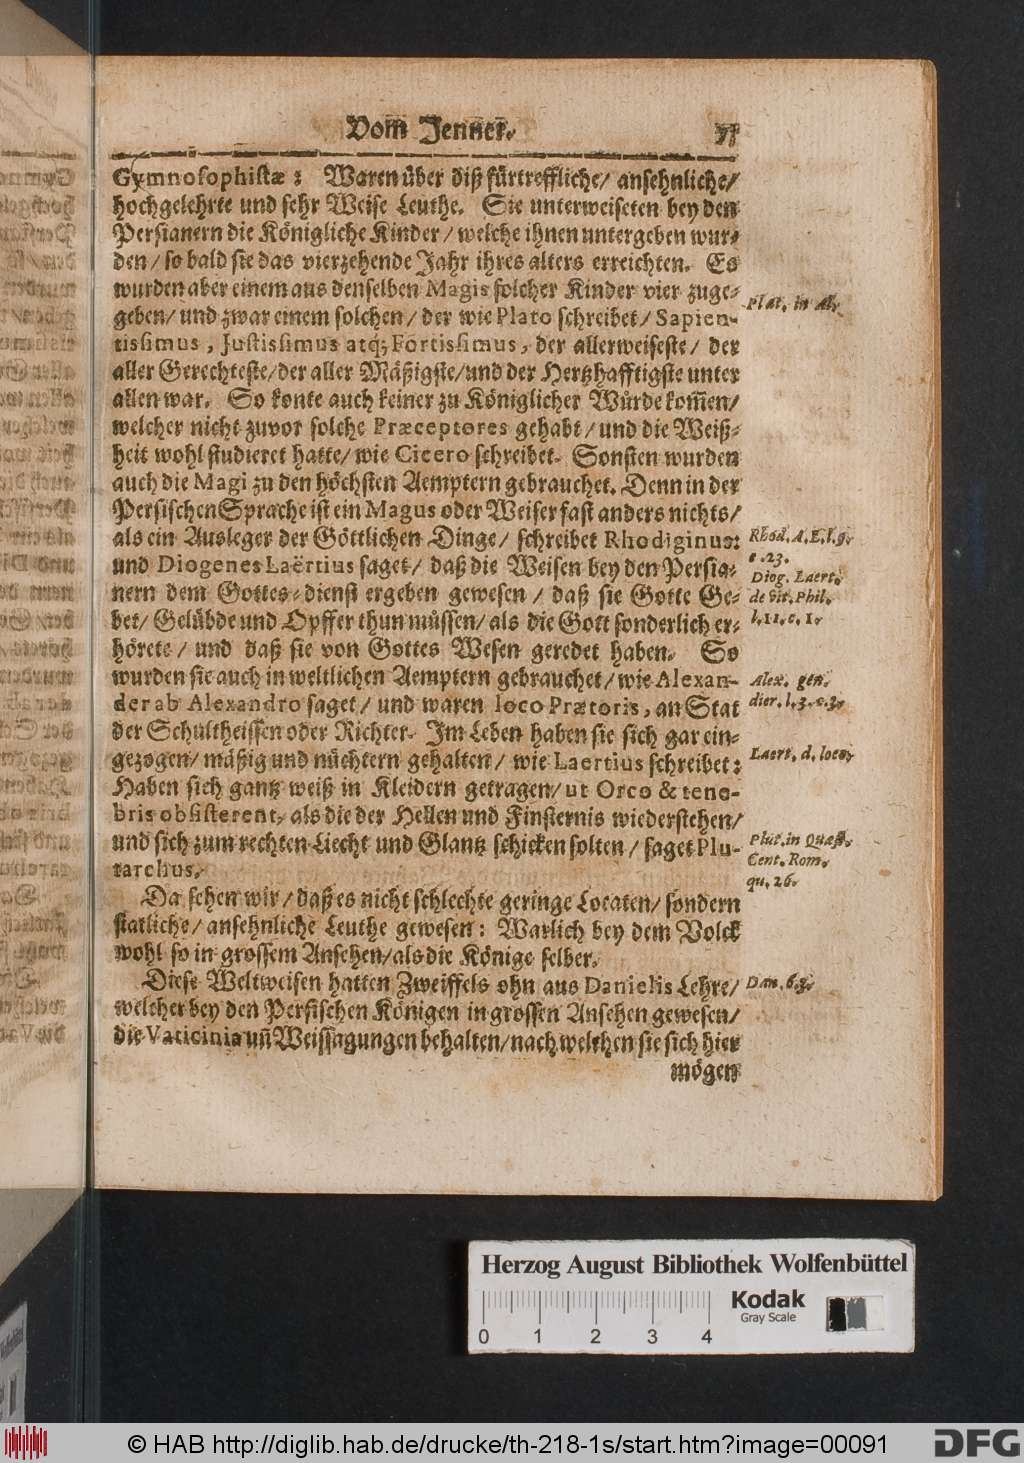 Vom Jenner.
Gymnosophistæ: Waren über diß fürtreffliche/ ansehnliche/
hochgelehrte und sehr Weise Leuthe. Sie unterweiseten bey den
Persianern die Königliche Kinder/ welche ihnen untergeben wur-
den/ so bald sie das vierzehende Jahr ihres alters erreichten. Es
wurden aber einem aus denselben Magis solcher Kinder vier zuge-
Plat. in Al.
geben/ und zwar einem solchen/ der wie Plato schreibet/ Sapien-
tissimus, Justissimus atq; Fortissimus, der allerweiseste/ der
aller Gerechteste/ der aller Mäßigste/ und der Hertzhafftigste unter
allen war. So konte auch keiner zu Königlicher Würde kom̃en/
welcher nicht zuvor solche Præceptores gehabt/ und die Weiß-
heit wohl studieret hatte/ wie Cicero schreibet. Sonsten wurden
auch die Magi zu den höchsten Aemptern gebrauchet. Denn in der
Persischen Sprache ist ein Magus oder Weiser fast anders nichts/
als ein Ausleger der Göttlichen Dinge/ schreibet Rhodiginus:
Rhod. A. L. l. 9.
c. 23.
und Diogenes Laërtius saget/ daß die Weisen bey den Persia-
Diog. Laert.
nern dem Gottes-dienst ergeben gewesen/ daß sie Gotte Ge-
de vit. Phil.
bet/ Gelübde und Opffer thun müssen/ als die Gott sonderlich er-
l. 11. c. 1.
hörete/ und daß sie von Gottes Wesen geredet haben. So
wurden sie auch in weltlichen Aemptern gebrauchet/ wie Alexan-
Alex. gen.
der ab Alexandro saget/ und waren loco Prætoris, an Stat
dier. l. 3. c. 3.
der Schultheissen oder Richter. Im Leben haben sie sich gar ein-
gezogen/ mäßig und nüchtern gehalten/ wie Laertius schreibet:
Laert. d. loco,
Haben sich gantz weiß in Kleidern getragen/ ut Orco & tene-
bris obsisterent, als die der Hellen und Finsternis wiederstehen/
und sich zum rechten Liecht und Glantz schicken solten/ saget Plu-
Plut. in Quæst.
Cent. Rom.
tarchus.
qu. 26.
Da sehen wir/ daß es nicht schlechte geringe Locaten/ sondern
statliche/ ansehnliche Leuthe gewesen: Warlich bey dem Volck
wohl so in grossem Ansehen/ als die Könige selber.
Diese Weltweisen hatten Zweiffels ohn aus Danielis Lehre/
Dan. 6. 3.
welcher bey den Persischen Königen in grossen Ansehen gewesen/
die Vaticinia uñ Weissagungen behalten/ nach welchen sie sich hier
mögen
Herzog August Bibliothek Wolfenbüttel
0 1 2 3 4
Kodak
Gray Scale
© HAB http://diglib.hab.de/drucke/th-218-1s/start.htm?image=00091
DFG